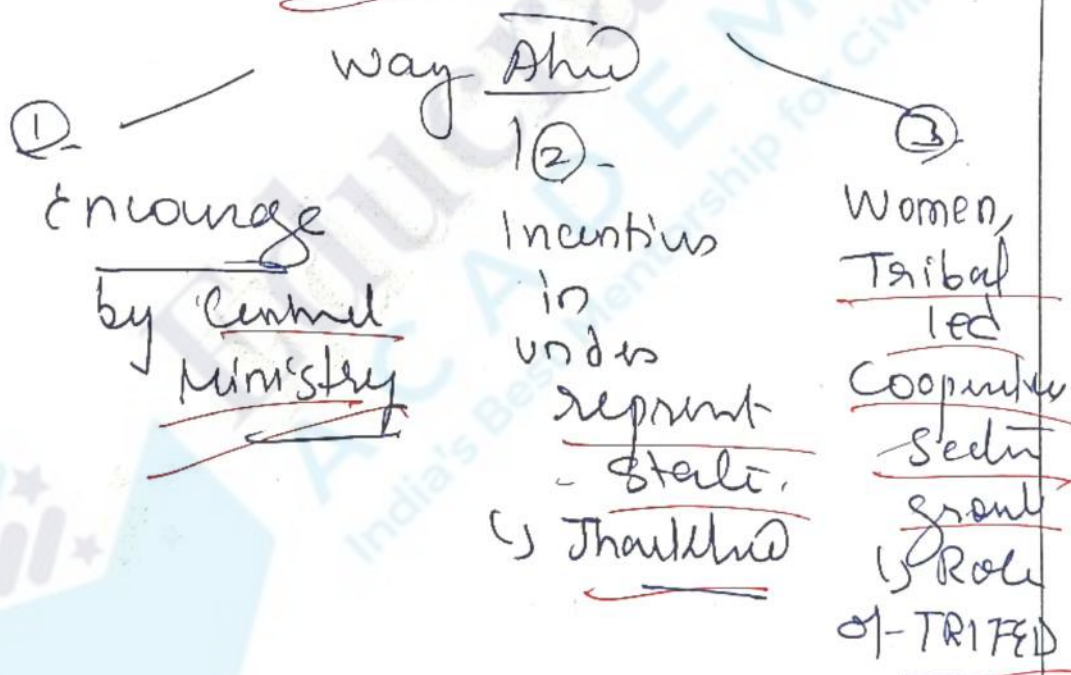 Way Ahd
①
Encourage
by Central
Ministry
②
Incentives
in
under
represnt
State.
↳ Jharkhnd
③
Women,
Tribal
led
Cooperative
Sector
growth
↳ Role
of TRIFED
ACADEMY
India's Best Mentorship for Civil